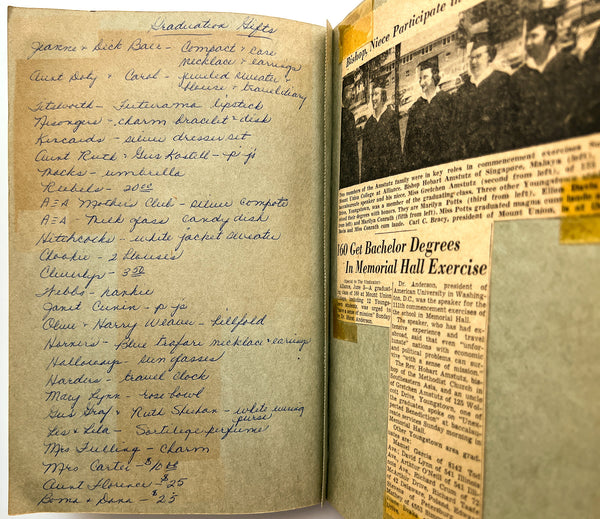 Graduation Gifts
Jeanne & Dick Ball - Compact & case
necklace & earrings
Aunt Doty & Carol - jeweled sweater &
blouse & travel diary
Titsworth - Futurama lipstick
Nisongers - charm bracelet & dish
Kincaids - silver dresser set
Aunt Ruth & Gus Kostell - p j's
Mocks - umbrella
Riebels - 20.00
AΞΔ Mothers Club - silver compote
AΞΔ - milk glass candy dish
Hitchcocks - white jacket sweater
Chookie - 2 blouses
Cleverlys - 3.50
Webbs - hankie
Janet Cunin - p js
Olive & Harry Weaver - billfold
Horners - Blue Trafari necklace & earrings
Halloways - sun glasses
Harders - travel clock
Mary Lynn - rose bowl
Gus Graf & Ruth Shehan - white evening
purse
Les & Lila - Sortilege perfume
Mrs Fulling - charm
Mrs. Carter - $10.00
Aunt Florence - $25
Boma & Dana - $25
Bishop, Niece Participate in
members of the Amstutz family were in key roles in commencement exercises
Mount Union College of Alliance. Bishop Hobart Amstutz of Singapore, Malaya (left),
baccalaureate speaker and his niece, Miss Gretchen Amstutz (second from left), of
Drive, Youngstown, was a member of the graduating class. Three other Youngs
received their degrees with honors. They are Marilyn Potts (third from left), Ellen
from left) and Marilyn Conrath (fifth from left). Miss Potts graduated magna cum
and Miss Conrath cum laude. Carl C. Bracy, president of Mount Union
160 Get Bachelor Degrees
In Memorial Hall Exercise
Special to The Vindicator
Dr. Anderson, president of
American University in Washing-
ton, D.C., was the speaker for the
111th commencement exercises of
the school in Memorial Hall.
The speaker, who has had ex-
tensive experience and travel
abroad, said that even "unfor-
tunate" nations with economic
and political problems can sur-
vive "with a sense of mission."
The Rev. Hobart Amstutz, bish-
op of the Methodist Church in
Southeastern Asia, and uncle of
Gretchen Amstutz of 125 Wol-
cott Drive, Youngstown, one of
the graduates, spoke on
Other Youngstown area grad-
uates were: